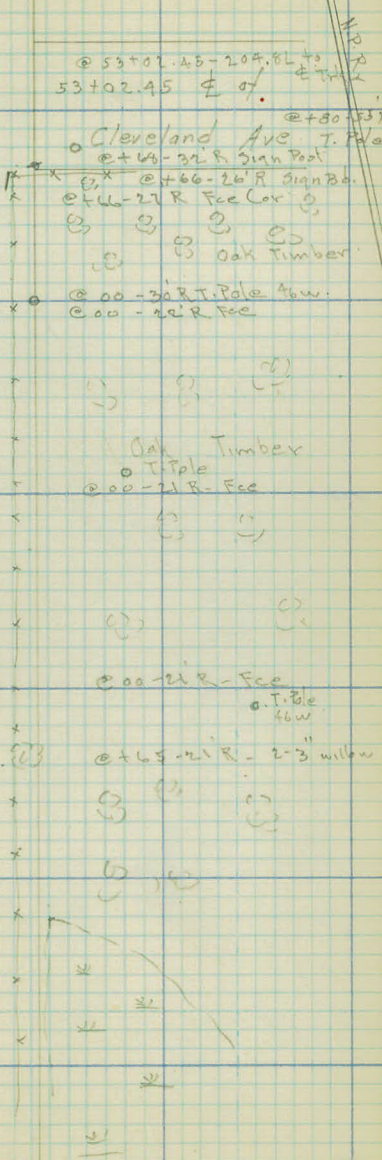 N.P.R.R.
@ 53+02.45-204.8L to
53+02.45 ℄ of ℄ Trk
@+80-33'
Cleveland Ave. T. Pole
@+68-32' R Sign Post
@+66-26' R Sign Bo.
@+66-27 R Fce Cor
Oak Timber
@ 00-30' R T. Pole 46w.
@ 00-22' R Fce
Oak Timber
T-Pole
@ 00-21 R-Fce
@ 00-21' R-Fce
T. Pole
46w
@+65-21' R-2-3" willow